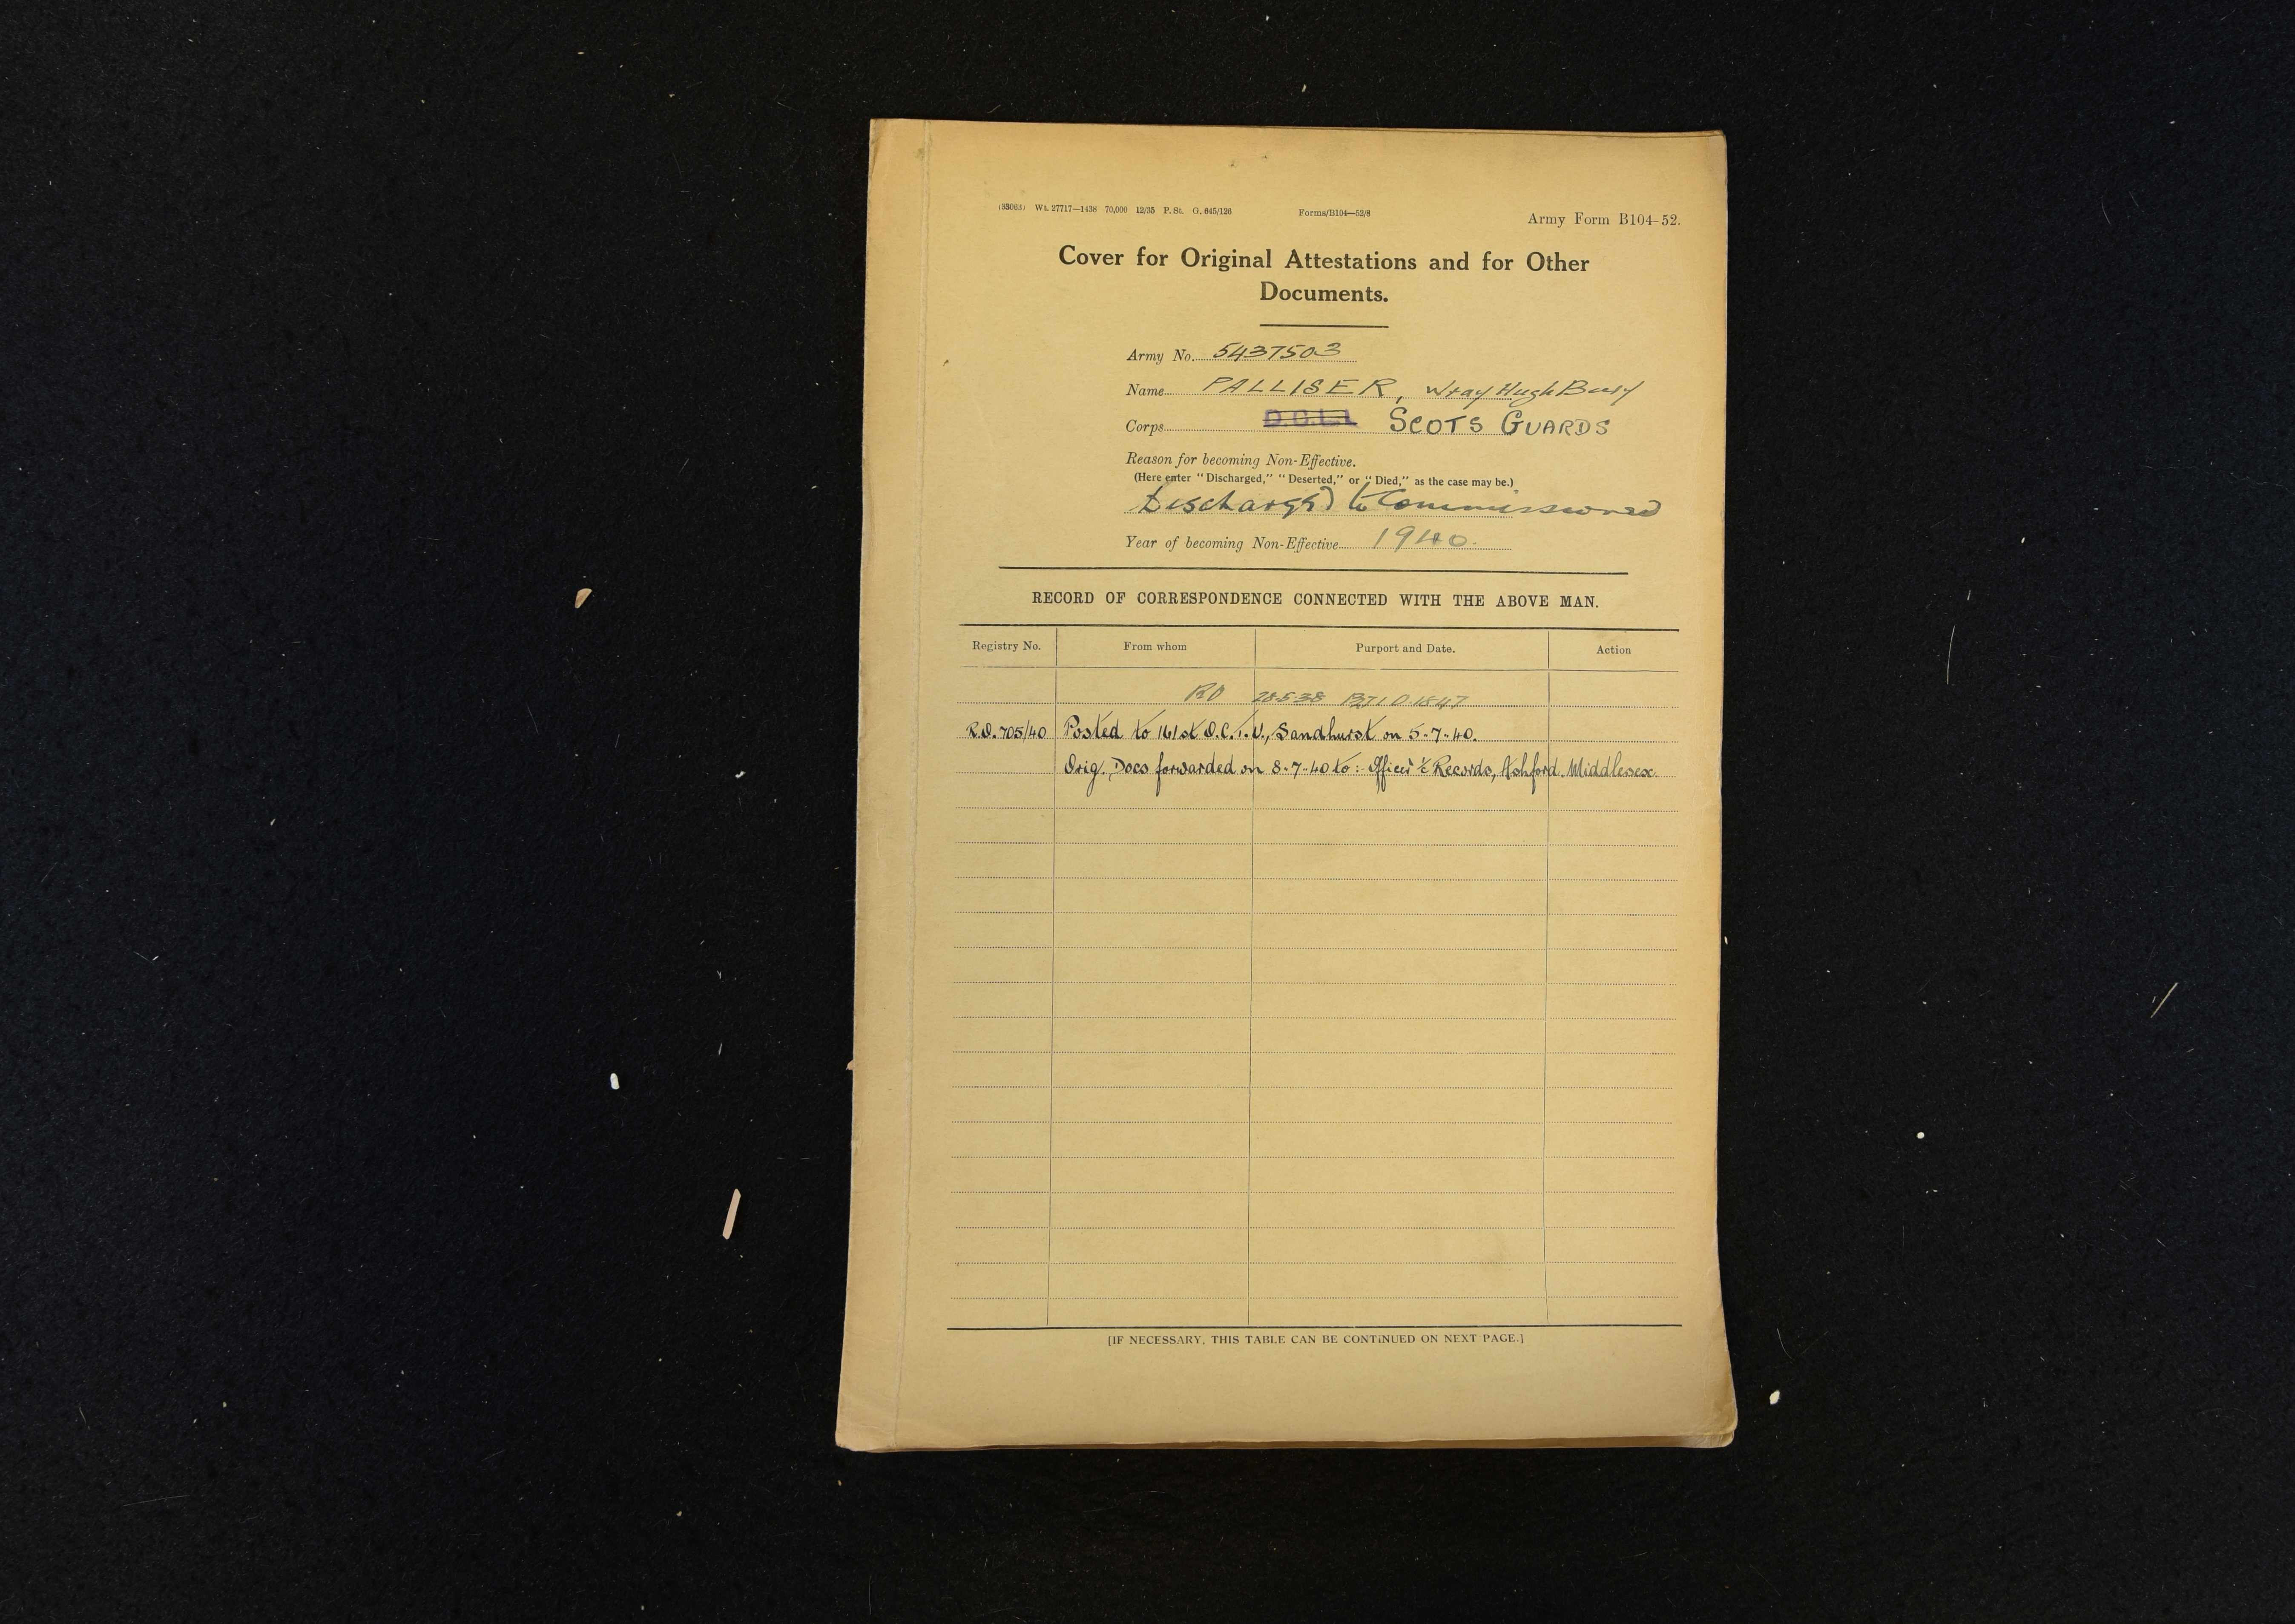 (33063) Wt. 27717—1438 70,000 12/35 P. St. G. 645/126 Forms/B104—52/8 Army Form B104-52.
Cover for Original Attestations and for Other
Documents.
Army No. 5437503
Name PALLISER, Wray Hugh Bury
Corps D.C.L.I. SCOTS GUARDS
Reason for becoming Non-Effective.
(Here enter "Discharged," "Deserted," or "Died," as the case may be.)
Discharged to Commissioned
Year of becoming Non-Effective 1940.
RECORD OF CORRESPONDENCE CONNECTED WITH THE ABOVE MAN.
Registry No. From whom Purport and Date. Action
28.5.38
R.O. 705/40 Posted to 161st O.C.T.U., Sandhurst on 5-7-40.
Orig. Docs forwarded on 8-7-40 to:- Officer i/c Records, Ashford. Middlesex.
[IF NECESSARY, THIS TABLE CAN BE CONTINUED ON NEXT PAGE.]